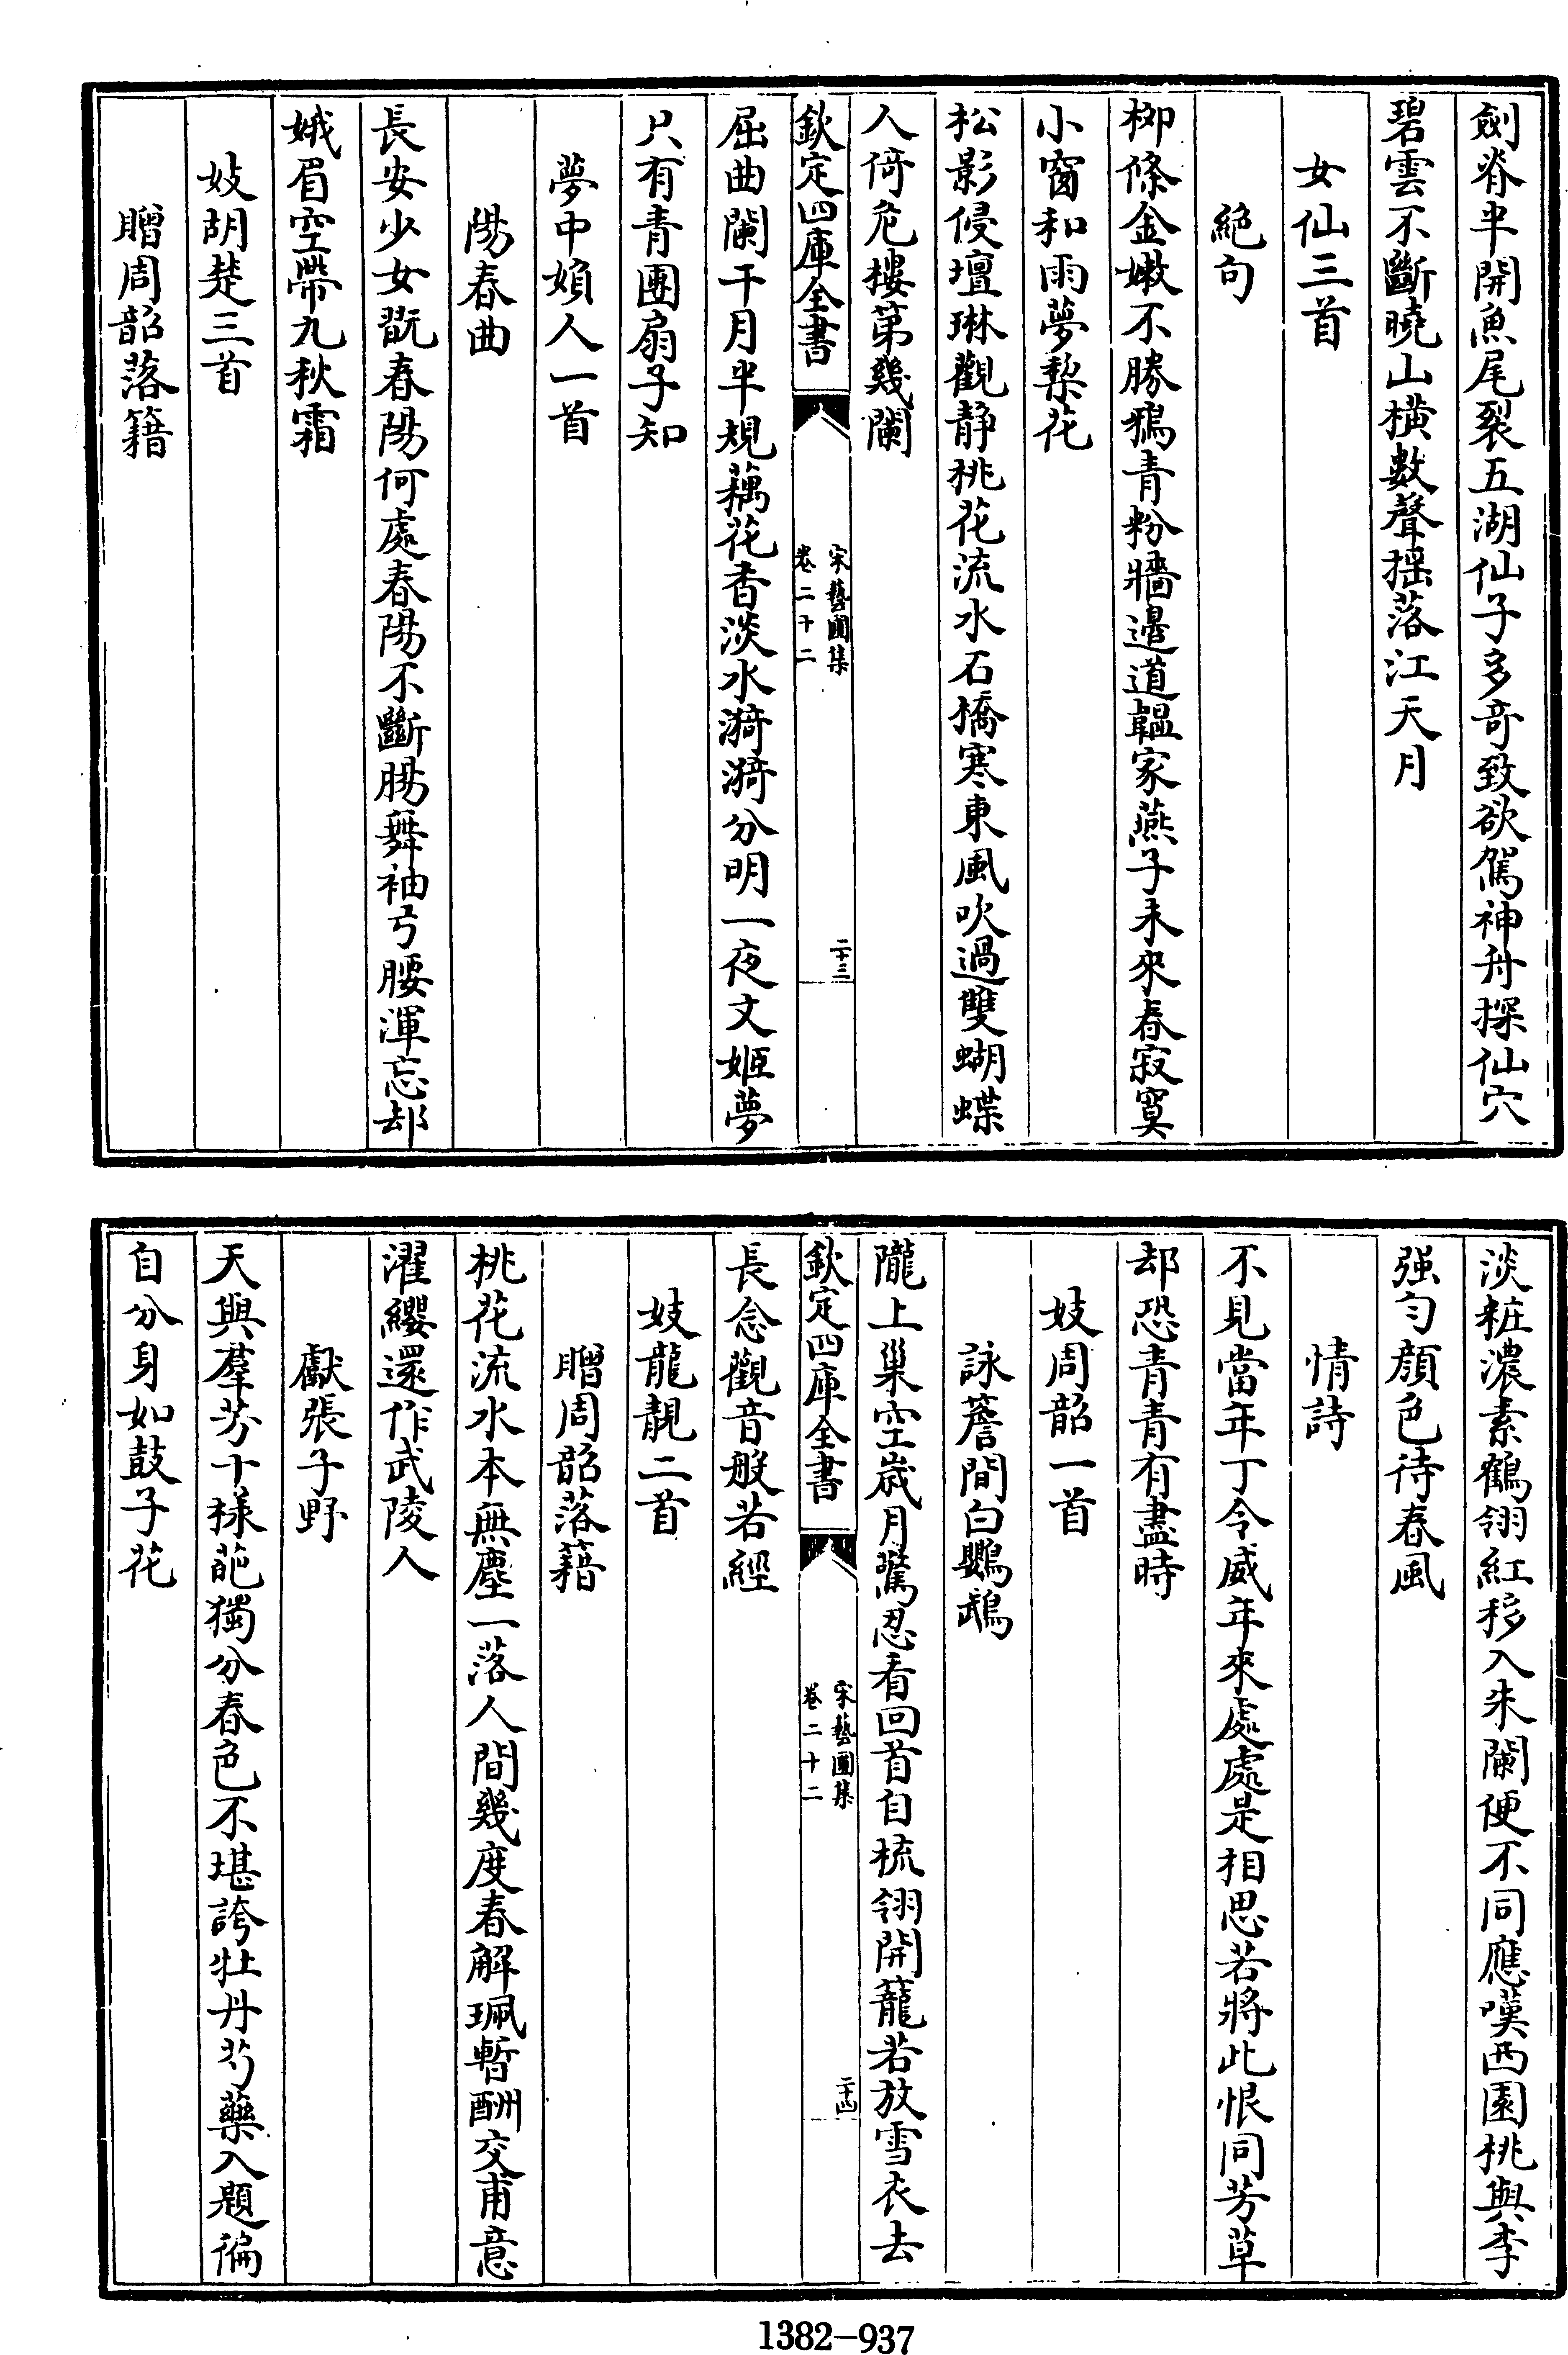 劍脊半開魚尾裂五湖仙子多奇致欲駕神舟探仙穴
碧雲不斷曉山橫數聲摇落江天月
女仙三首
絶句
栁條金嫩不勝鴉青粉牆邉道韞家燕子未來春寂寞
小窗和雨夢棃花
松影侵壇琳觀静桃花流水石橋寒東風吹過雙蝴蝶
人倚危樓第幾闌
欽定四庫全書
宋藝圃集
卷二十二
二十三
屈曲闌干月半規藕花香淡水漪漪分明一夜文姬夢
只有青團扇子知
夢中頻人一首
陽春曲
長安少女翫春陽何處春陽不斷腸舞袖弓腰渾忘却
娥眉空帶九秋霜
妓胡楚三首
贈周韶落籍
淡粧濃素鶴翎紅移入朱闌便不同應嘆西園桃與李
强匀顔色待春風
情詩
不見當年丁令威年來處處是相思若將此恨同芳草
却恐青青有盡時
妓周韶一首
詠簷間白鸚鵡
隴上巢空歲月驚忍看回首自梳翎開籠若放雪衣去
欽定四庫全書
宋藝圃集
卷二十二
二十四
長念觀音般若經
妓龍靚二首
贈周韶落籍
桃花流水本無塵一落人間幾度春解珮暫酬交甫意
濯纓還作武陵人
獻張子野
天與羣芳十様葩獨分春色不堪誇牡丹芍藥入題徧
自分身如鼓子花
1382-937